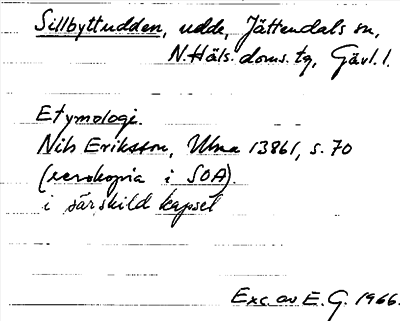 Sillbyttudden, udde, Jättendals sn,
N. Häls. doms. tg, Gävl. l.
Etymologi.
Nils Eriksson, Ulma 13861, s. 70
(xerokopia i SOA).
i särskild kapsel
Exc. av E. G. 1966.